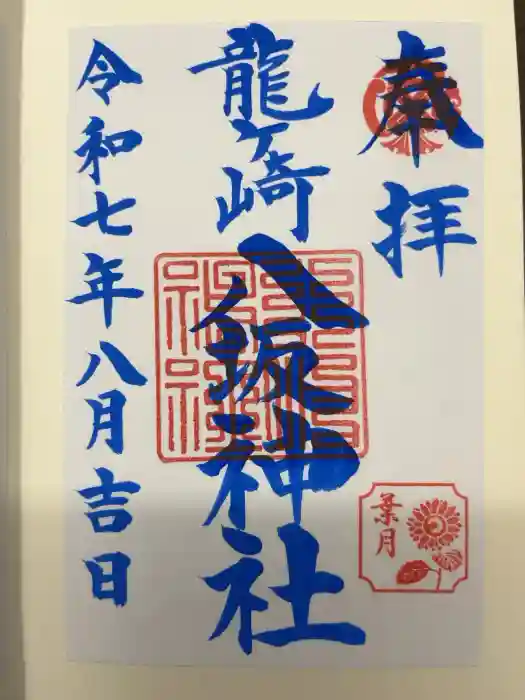 奉拝
龍ヶ崎八坂神社
葉月
令和七年八月吉日